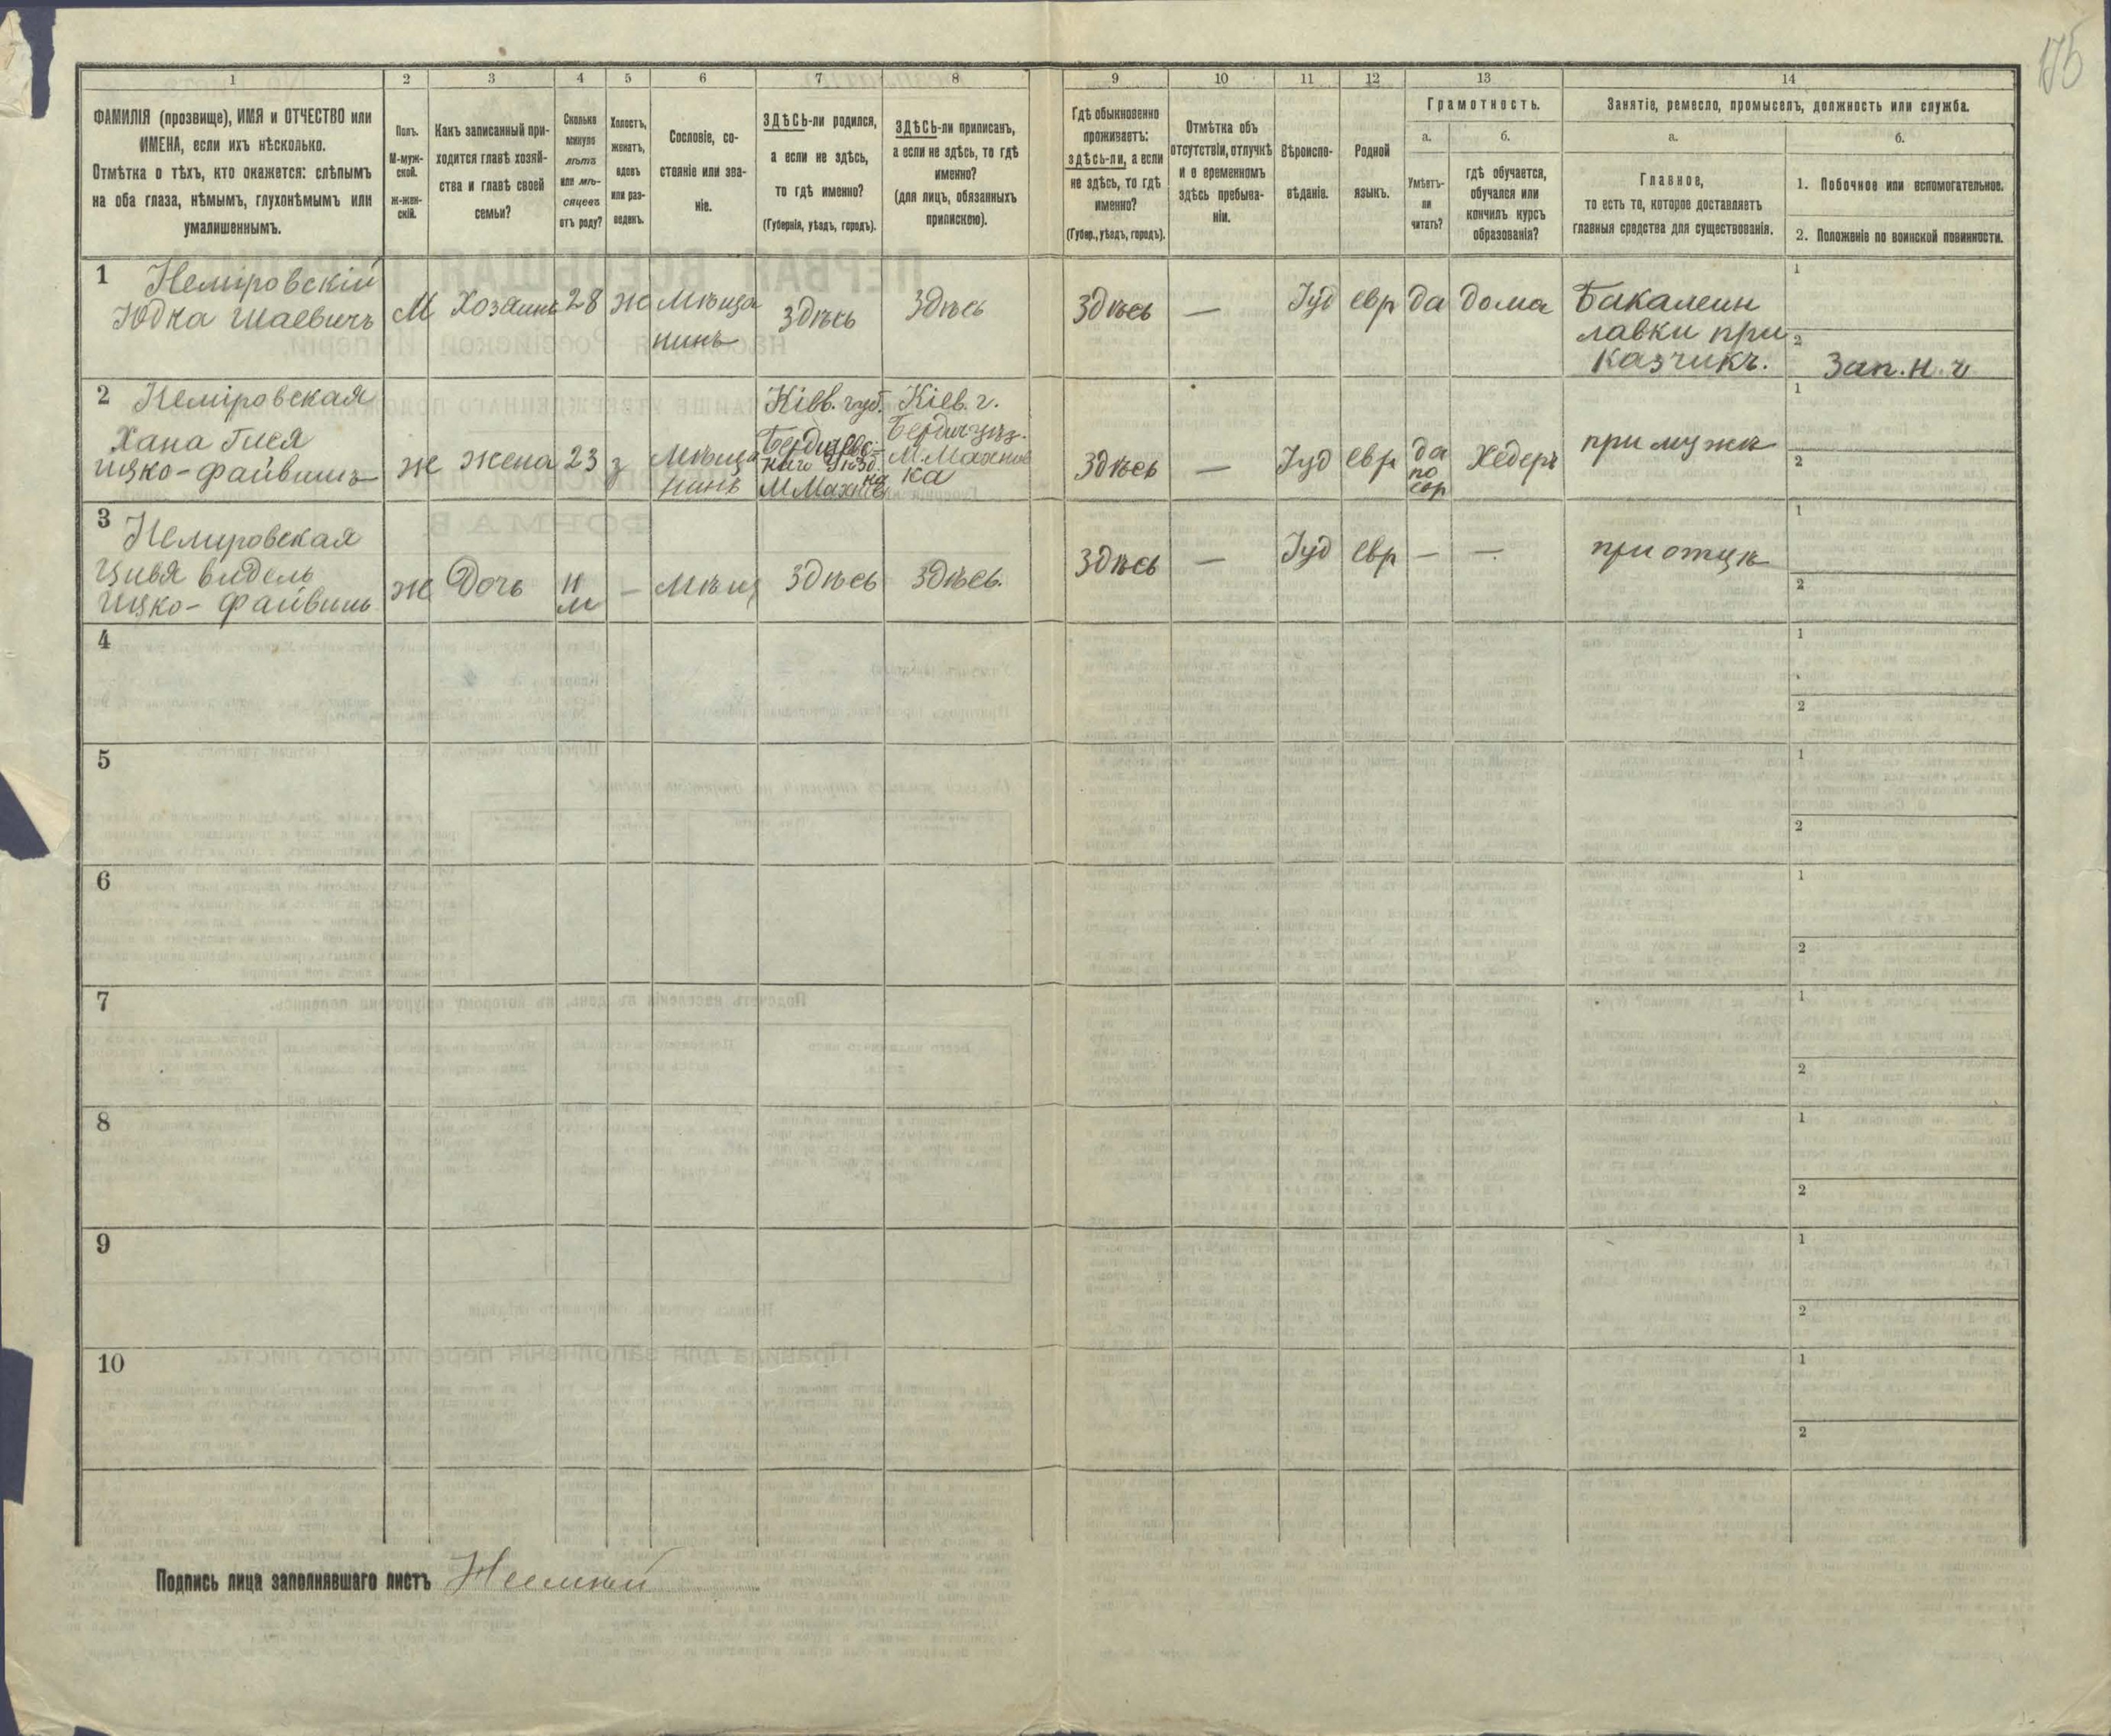 175
1
2
3
4
5
6
7
8
9
10
11
12
13
14
ФАМИЛІЯ (прозвище), ИМЯ и ОТЧЕСТВО или
ИМЕНА, если ихъ нѣсколько.
Отмѣтка о тѣхъ, кто окажется: слѣпымъ
на оба глаза, нѣмымъ, глухонѣмымъ или
умалишеннымъ.
Полъ.
М-муж-
ской.
Ж-жен-
скій.
Какъ записанный при-
ходится главѣ хозяй-
ства и главѣ своей
семьи?
Сколько
минуло
лѣтъ
или мѣ-
сяцевъ
отъ роду?
Холостъ,
женатъ,
вдовъ
или раз-
веденъ.
Сословіе, со-
стояніе или зва-
ніе.
ЗДѢСЬ-ли родился,
а если не здѣсь,
то гдѣ именно?
(Губернія, уѣздъ, городъ).
ЗДѢСЬ-ли приписанъ,
а если не здѣсь, то гдѣ
именно?
(для лицъ, обязанныхъ
припискою).
Гдѣ обыкновенно
проживаетъ:
здѣсь-ли, а если
не здѣсь, то гдѣ
именно?
(Губер., уѣздъ, городъ).
Отмѣтка объ
отсутствіи, отлучкѣ
и о временномъ
здѣсь пребыва-
ніи.
Вѣроиспо-
вѣданіе.
Родной
языкъ.
Грамотность.
а.
Умѣетъ-
ли
читать?
б.
гдѣ обучается,
обучался или
кончилъ курсъ
образованія?
Занятіе, ремесло, промыселъ, должность или служба.
а.
Главное,
то есть то, которое доставляетъ
главныя средства для существованія.
б.
1. Побочное или вспомогательное.
2. Положеніе по воинской повинности.
1 Неміровскій
Юдка Шаевичъ
М
Хозяинъ
28
ж
Мѣща
нинъ
здѣсь
здѣсь
здѣсь
—
Іуд
евр
да
дома
Бакалеин
лавки при
казчикъ.
1
2
Зап. н. ч
2 Неміровская
Хана Гися
Ицко-Файвишъ
ж
жена
23
з
Мѣща
нинъ
Кіев. губ.
Бердичевс-
каго Уѣзд.
М Махновка
Кіев. г.
Бердич уѣз.
М. Махнов
ка
здѣсь
—
Іуд
евр
да
по
евр
Хедеръ
при мужѣ
1
2
3 Немировская
Цивя видель
Ицко-Файвишъ
ж
Дочь
11
м
—
Мѣщ
здѣсь
здѣсь.
здѣсь
—
Іуд
евр
—
—
при отцѣ
1
2
4
1
2
5
1
2
6
1
2
7
1
2
8
1
2
9
1
2
10
1
2
Подпись лица заполнявшаго листъ